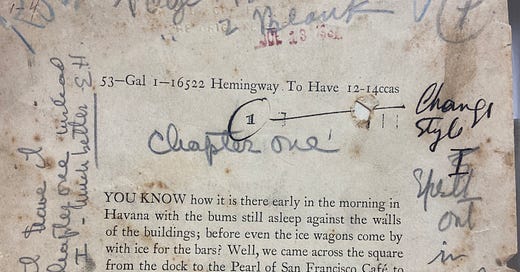 Page
2 Blank
53—Gal 1—16522 Hemingway To Have 12-14ccas
1
Chapter one
Change
Style
I
Spell
out
in
I have I
chapter one instead
I - Much better E.H.
YOU KNOW how it is there early in the morning in
Havana with the bums still asleep against the walls
of the buildings; before even the ice wagons come by
with ice for the bars? Well, we came across the square
from the dock to the Pearl of San Francisco Café to